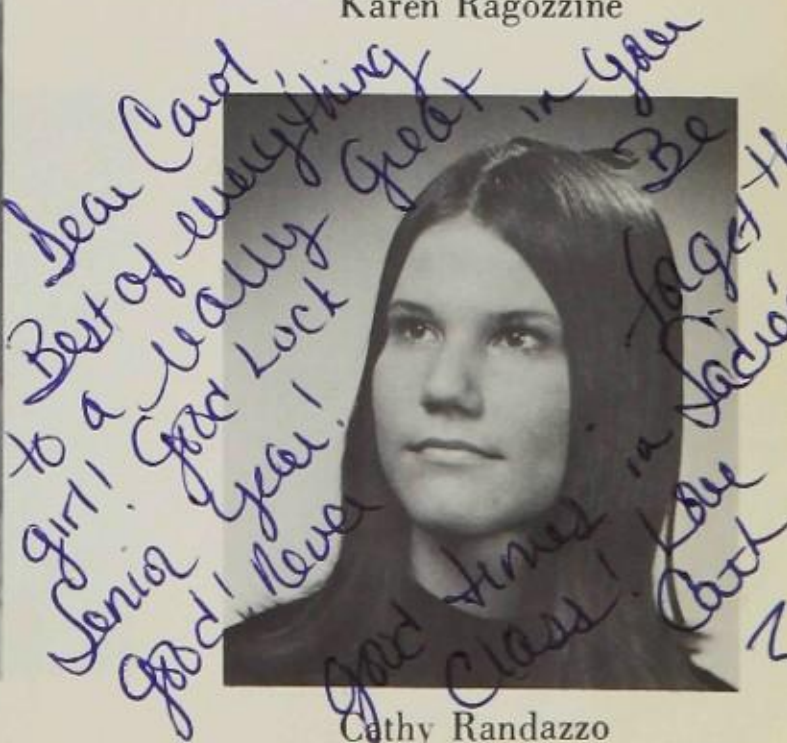 Karen Ragozzine
Dear Carol,
Best of everything
to a really great
girl! Good Luck in your
Senior Year! Be
Good! Never forget th
good times in Sadie's
Class! Love
Cath
Cathy Randazzo